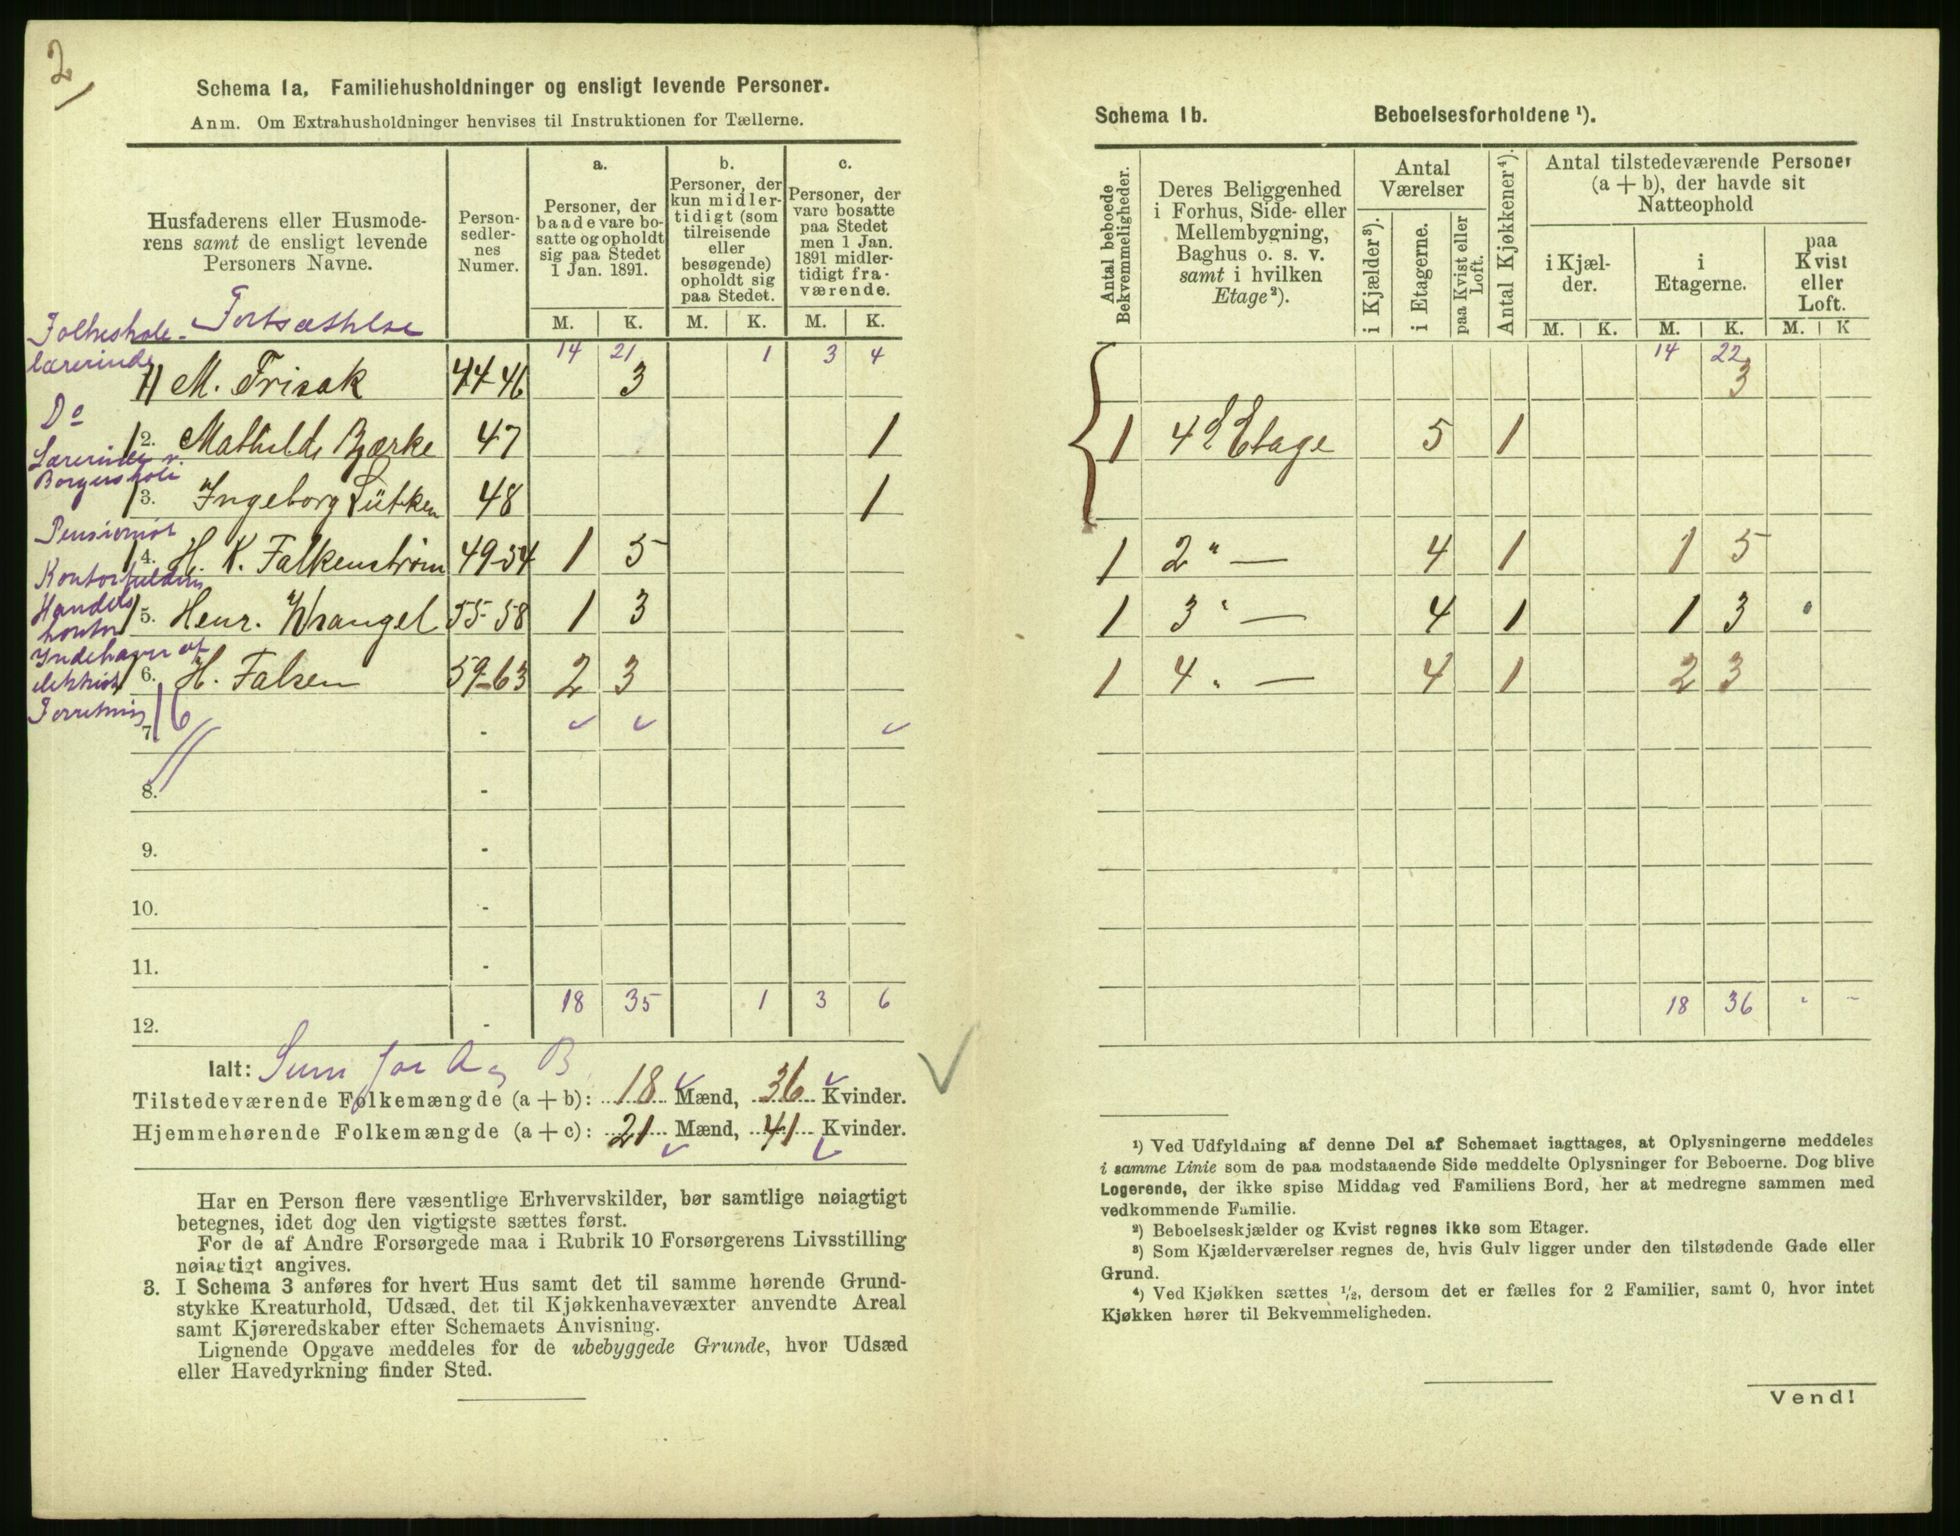 2
Schema 1a. Familiehusholdninger og ensligt levende Personer.
Anm. Om Extrahusholdninger henvises til Instruktionen for Tællerne.
Husfaderens eller Husmode-
rens samt de ensligt levende
Personers Navne.
Person-
sedler-
nes
Numer.
a.
Personer, der
baade vare bo-
satte og opholdt
sig paa Stedet
1 Jan. 1891.
b.
Personer, der
kun midler-
tidigt (som
tilreisende
eller
besøgende)
opholdt sig
paa Stedet.
c.
Personer, der
vare bosatte
paa Stedet
men 1 Jan.
1891 midler-
tidigt fra-
værende.
M. K. M. K. M. K.
Fortsættelse
14 21 1 3 4
Folkeskole-
lærerinde
1 M. Frisak 44-46 3
Do
2. Mathilde Bjærke 47 1
Lærerinde v.
Borgerskole
3. Ingeborg Lütken 48 1
Pensionist
4. H. K. Falkenstrøm 49-54 1 5
Kontorfuldm
Handels
kontor
5. Henr. Wrangel 55-58 1 3
Indehaver af
elektrisk
Forretning
6. H. Falsen 59-63 2 3
16
7.
8.
9.
10.
11.
12. 18 35 1 3 6
Ialt: Sum for A og B
Tilstedeværende Folkemængde (a + b): 18 Mænd, 36 Kvinder.
Hjemmehørende Folkemængde (a + c): 21 Mænd, 41 Kvinder.
Har en Person flere væsentlige Erhvervskilder, bør samtlige nøiagtigt
betegnes, idet dog den vigtigste sættes først.
For de af Andre Forsørgede maa i Rubrik 10 Forsørgerens Livsstilling
nøiagtigt angives.
3. I Schema 3 anføres for hvert Hus samt det til samme hørende Grund-
stykke Kreaturhold, Udsæd, det til Kjøkkenhavevæxter anvendte Areal
samt Kjøreredskaber efter Schemaets Anvisning.
Lignende Opgave meddeles for de ubebyggede Grunde, hvor Udsæd
eller Havedyrkning finder Sted.
Schema 1b. Beboelsesforholdene ¹).
Antal beboede
Bekvemmeligheder.
Deres Beliggenhed
i Forhus, Side- eller
Mellembygning,
Baghus o. s. v.
samt i hvilken
Etage²).
Antal
Værelser
i Kjælder³).
i Etagerne.
paa Kvist eller
Loft.
Antal Kjøkkener⁴).
Antal tilstedeværende Personer
(a + b), der havde sit
Natteophold
i Kjæl-
der.
i
Etagerne.
paa
Kvist
eller
Loft.
M. K. M. K. M. K
14 22
3
1 4d Etage 5 1
1 2 " — 4 1 1 5
1 3 " — 4 1 1 3
1 4 " — 4 1 2 3
18 36
¹) Ved Udfyldning af denne Del af Schemaet iagttages, at Oplysningerne meddeles
i samme Linie som de paa modstaaende Side meddelte Oplysninger for Beboerne. Dog blive
Logerende, der ikke spise Middag ved Familiens Bord, her at medregne sammen med
vedkommende Familie.
²) Beboelseskjælder og Kvist regnes ikke som Etager.
³) Som Kjælderværelser regnes de, hvis Gulv ligger under den tilstødende Gade eller
Grund.
⁴) Ved Kjøkken sættes ½, dersom det er fælles for 2 Familier, samt 0, hvor intet
Kjøkken hører til Bekvemmeligheden.
Vend!